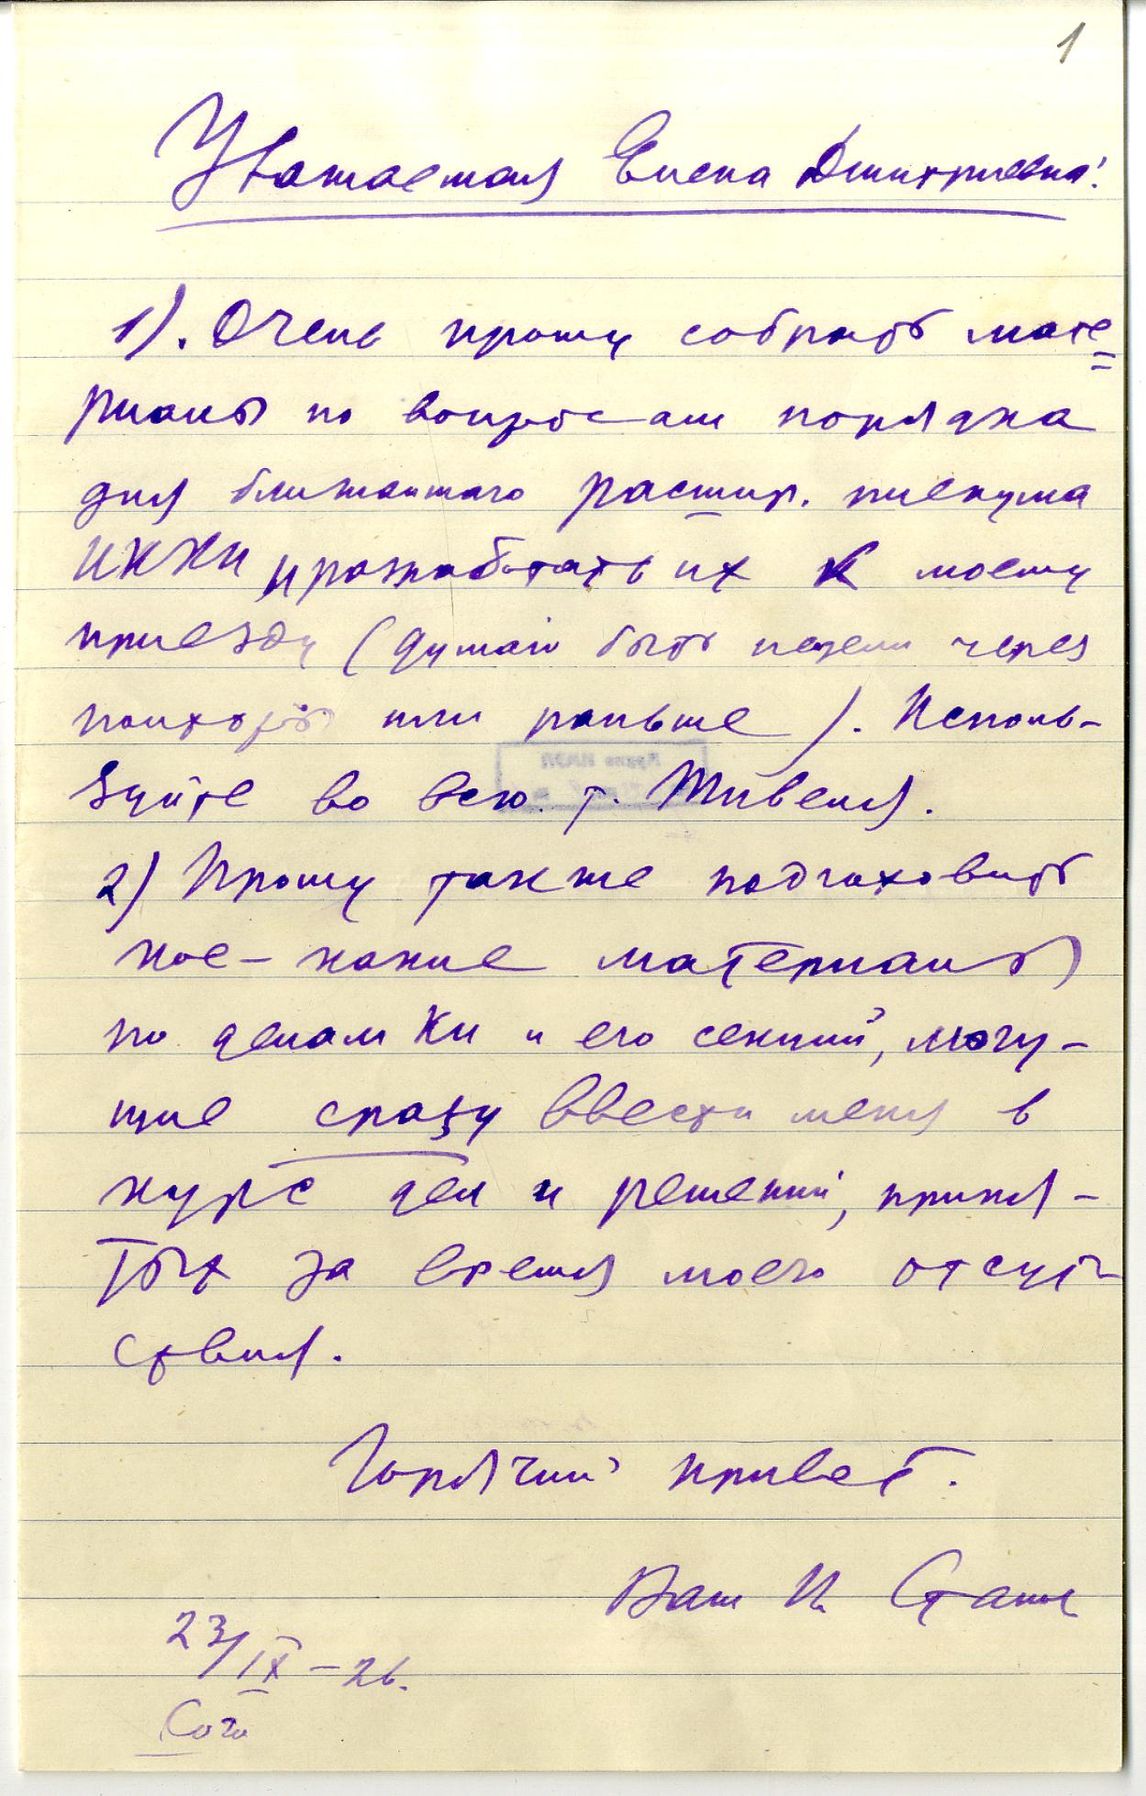 1
Уважаемая Елена Дмитриевна!
1). Очень прошу собрать мате=
риалы по вопросам порядка
дня ближайшего расшир. пленума
ИККИ и разработать их к моему
приезду (думаю быть недели через
полторы или раньше). Исполь-
зуйте во всю т. Тивеля.
2) Прошу также подготовить
кое-какие материалы
по делам КИ и его секций, могу-
щие сразу ввести меня в
курс дел и решений, приня-
тых за время моего отсут-
ствия.
Горячий привет.
Ваш И. Сталин
23/IX-26.
Сочи